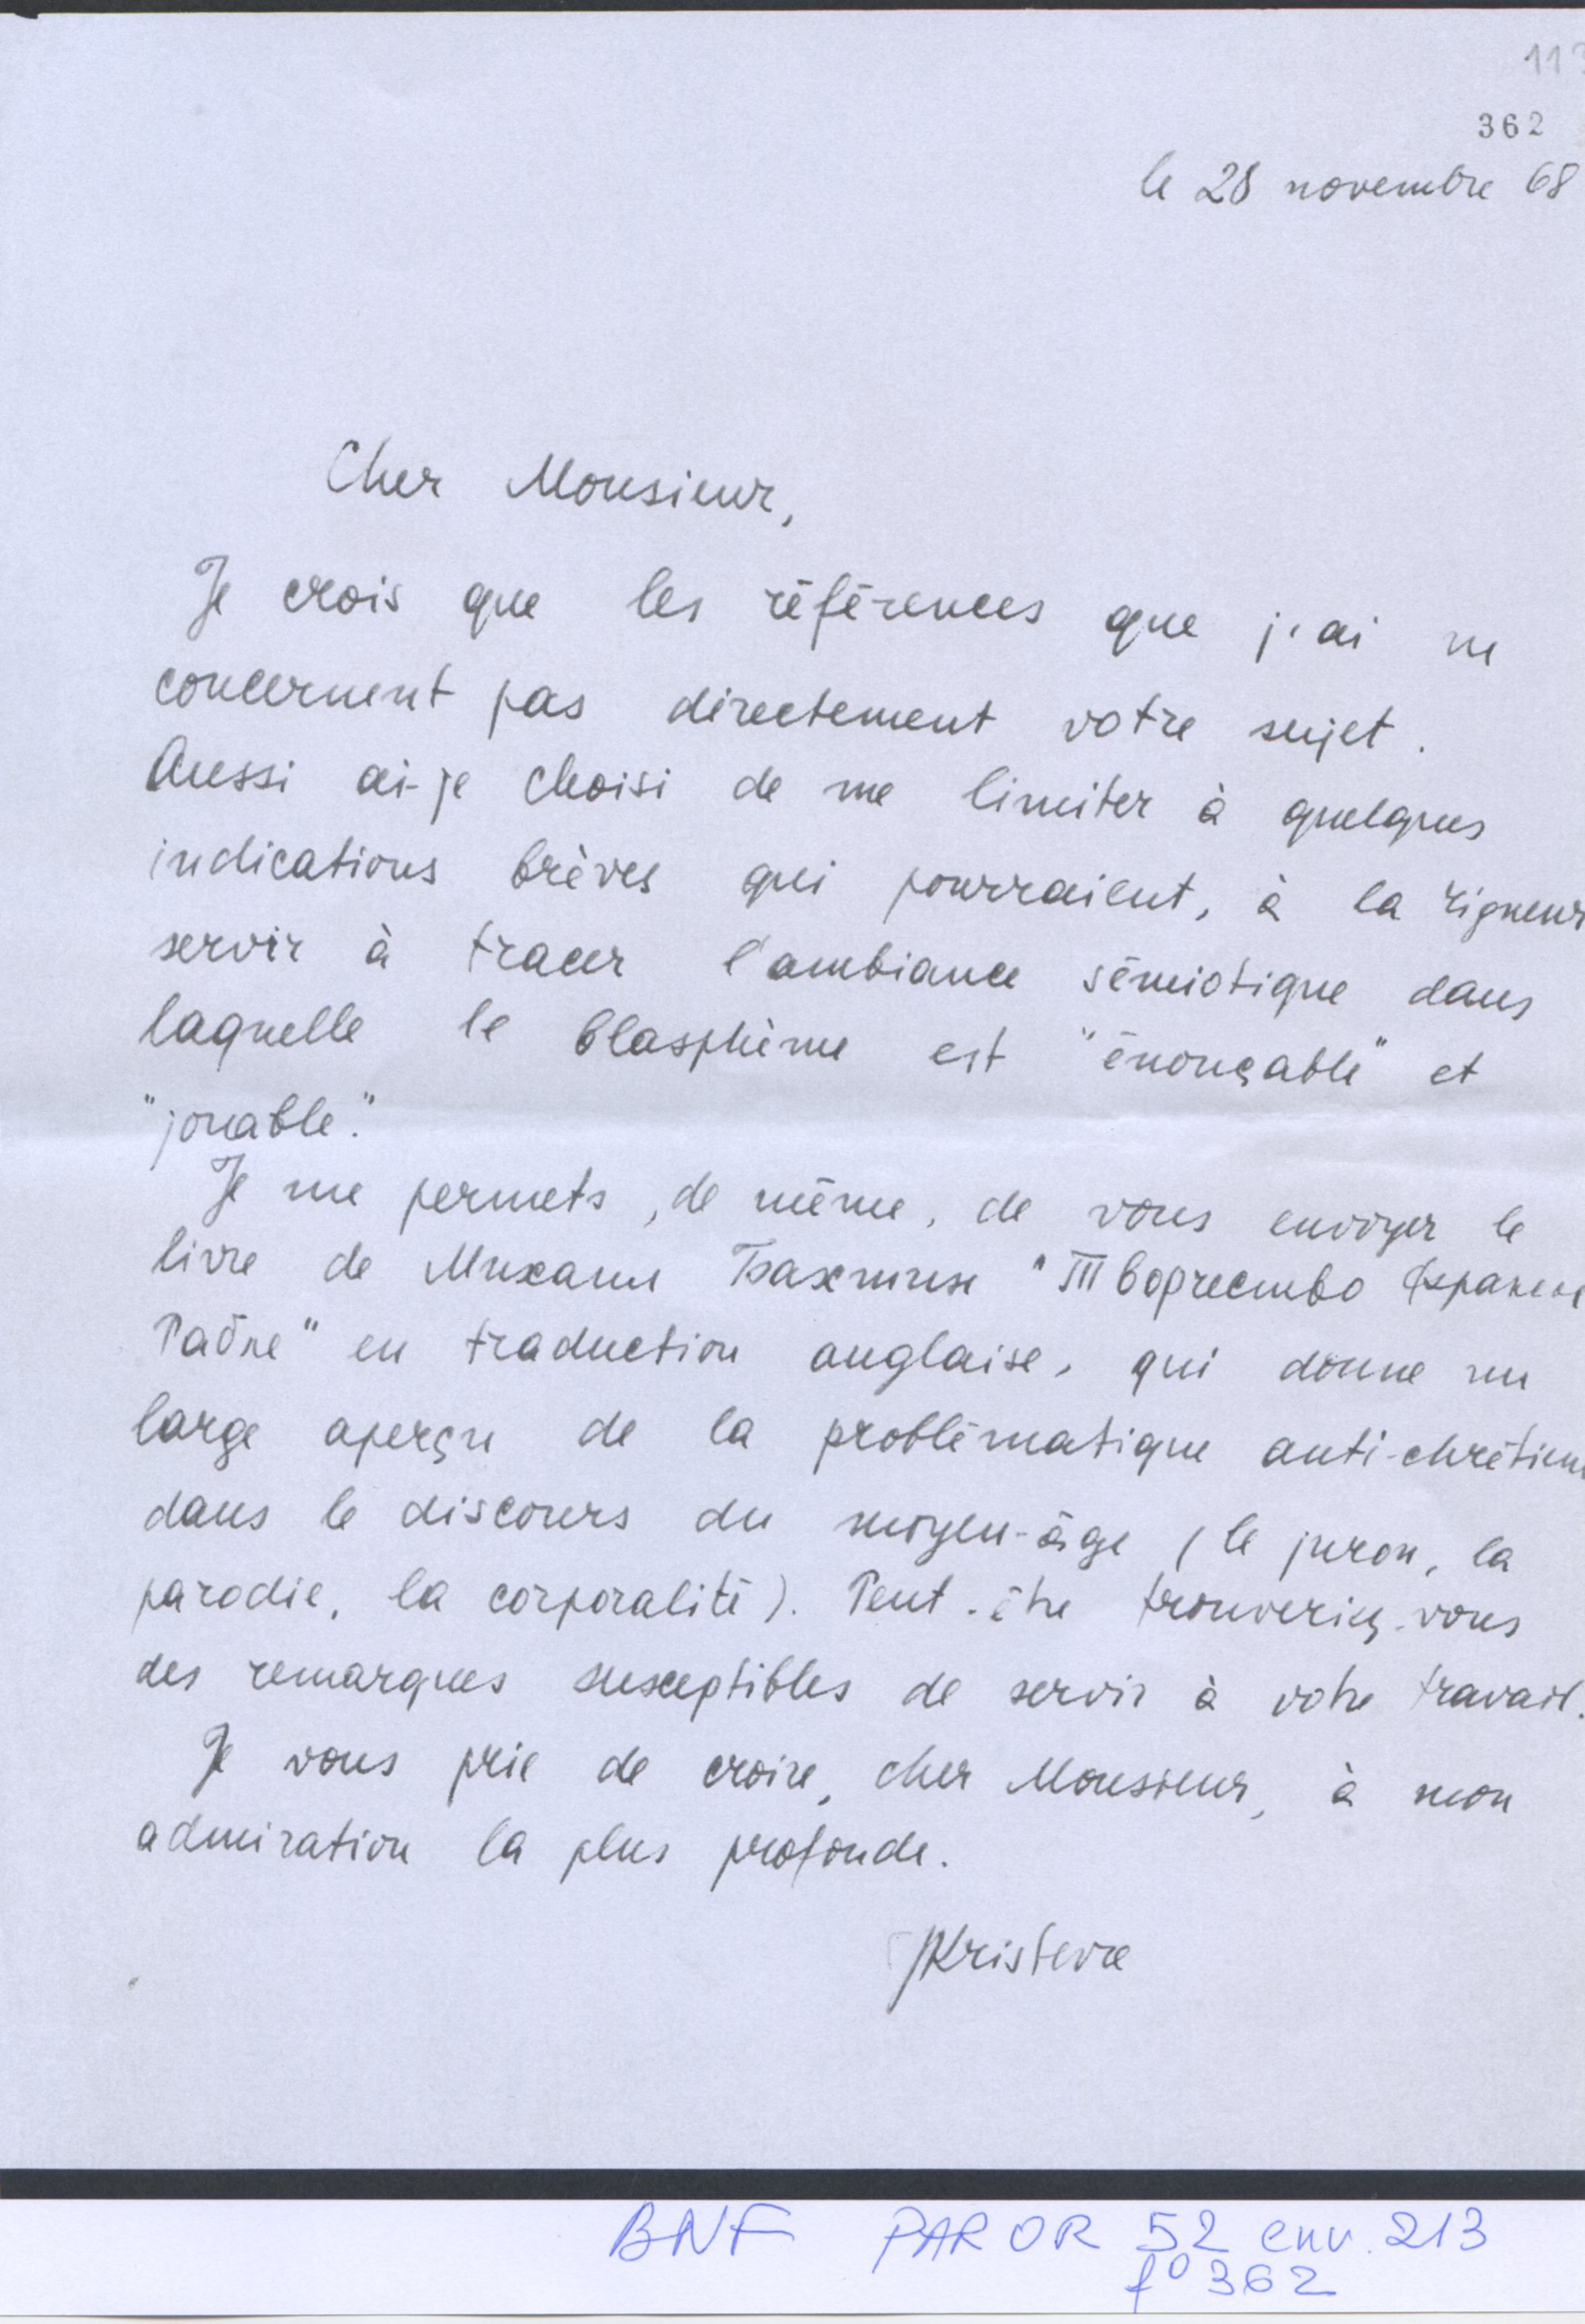 113
362
le 28 novembre 68
Cher Monsieur,
Je crois que les références que j'ai ne
concernent pas directement votre sujet.
Aussi ai-je choisi de me limiter à quelques
indications brèves qui pourraient, à la rigueur
servir à tracer l'ambiance sémiotique dans
laquelle le blasphème est "énonçable" et
"jouable".
Je me permets, de même, de vous envoyer le
livre de Михаил Бахтин "Творчество Франсуа
Рабле" en traduction anglaise, qui donne un
large aperçu de la problématique anti-chrétienne
dans le discours du moyen-âge (le juron, la
parodie, la corporalité). Peut-être trouveriez-vous
des remarques susceptibles de servir à votre travail.
Je vous prie de croire, cher Monsieur, à mon
admiration la plus profonde.
JKristeva
BNF PAR OR 52 env. 213
f° 362